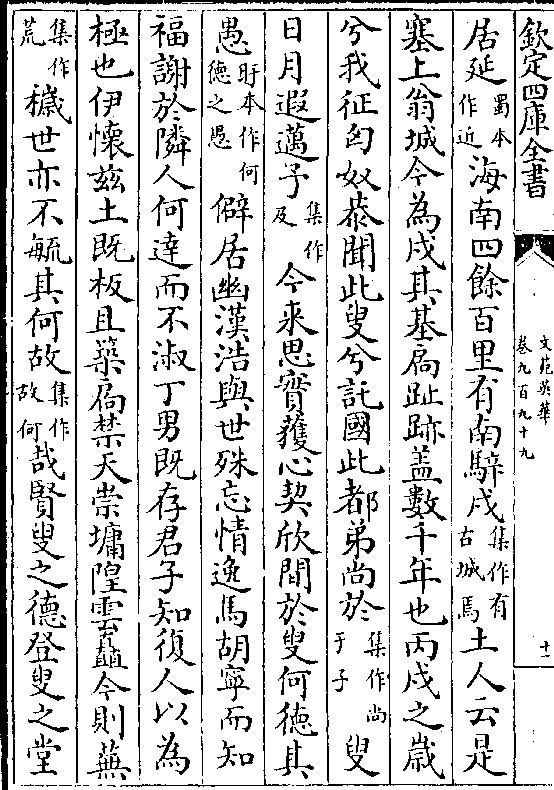 欽定四庫全書
文苑英華
卷九百九十九
十一
居延蜀本作近海南四餘百里有南騂戌集作有古城焉土人云是
塞上翁城今為戌其基扃趾跡盖數千年也丙戌之歳
兮我征匈奴恭聞此叟兮託國此都弟尚於集作尚于子叟
日月遐邁子集作及今來思實獲心契欣間於叟何德其
愚旴本作何德之愚僻居幽漢浩與世殊忘情逸馬胡寧而知
福謝於隣人何達而不淑丁男既存君子知復人以為
極也伊懷兹土既板且築扃禁天崇墉隍雲矗今則蕪
荒集作穢世亦不毓其何故集作故何哉賢叟之德登叟之堂